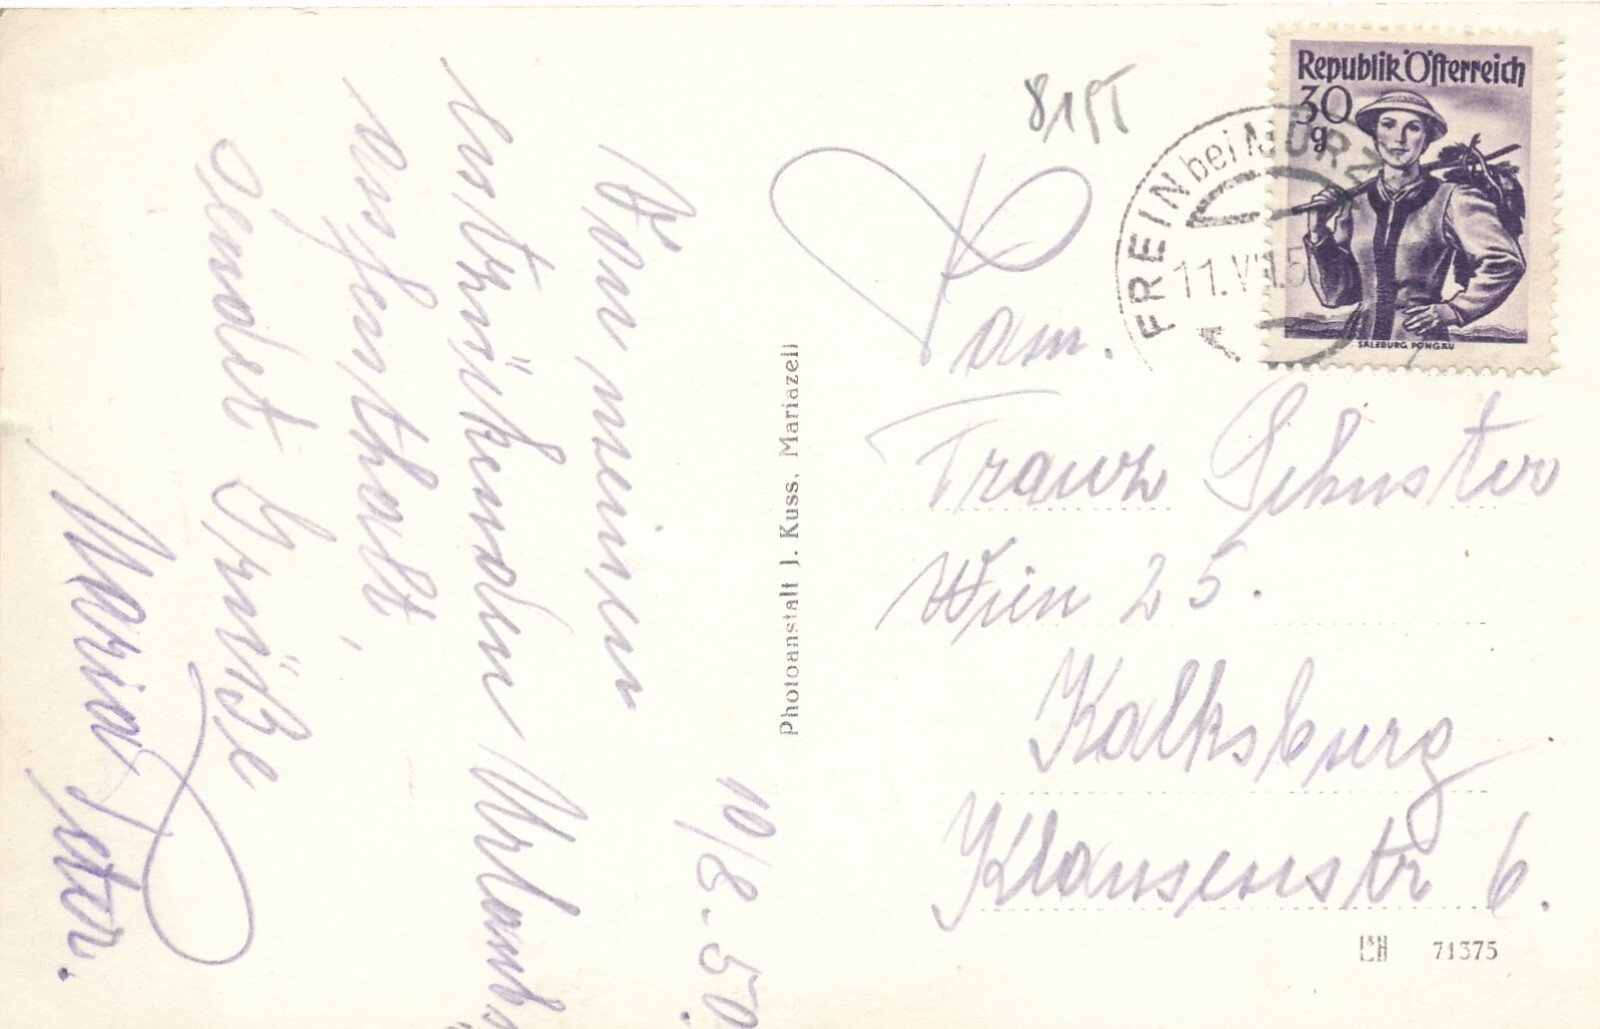 10/8. 50.
Von meinen
entzückenden Urlaubs
aufenthalt,
sendet Grüße
Maria Peter.
Photoanstalt J. Kuss, Mariazell
8155
Republik Österreich
30
g
SALZBURG PONGAU
FREIN bei MÜRZ
11.VIII.5
Fam.
Franz Schuster
Wien 25.
Kalksburg
Klausenstr 6.
71375